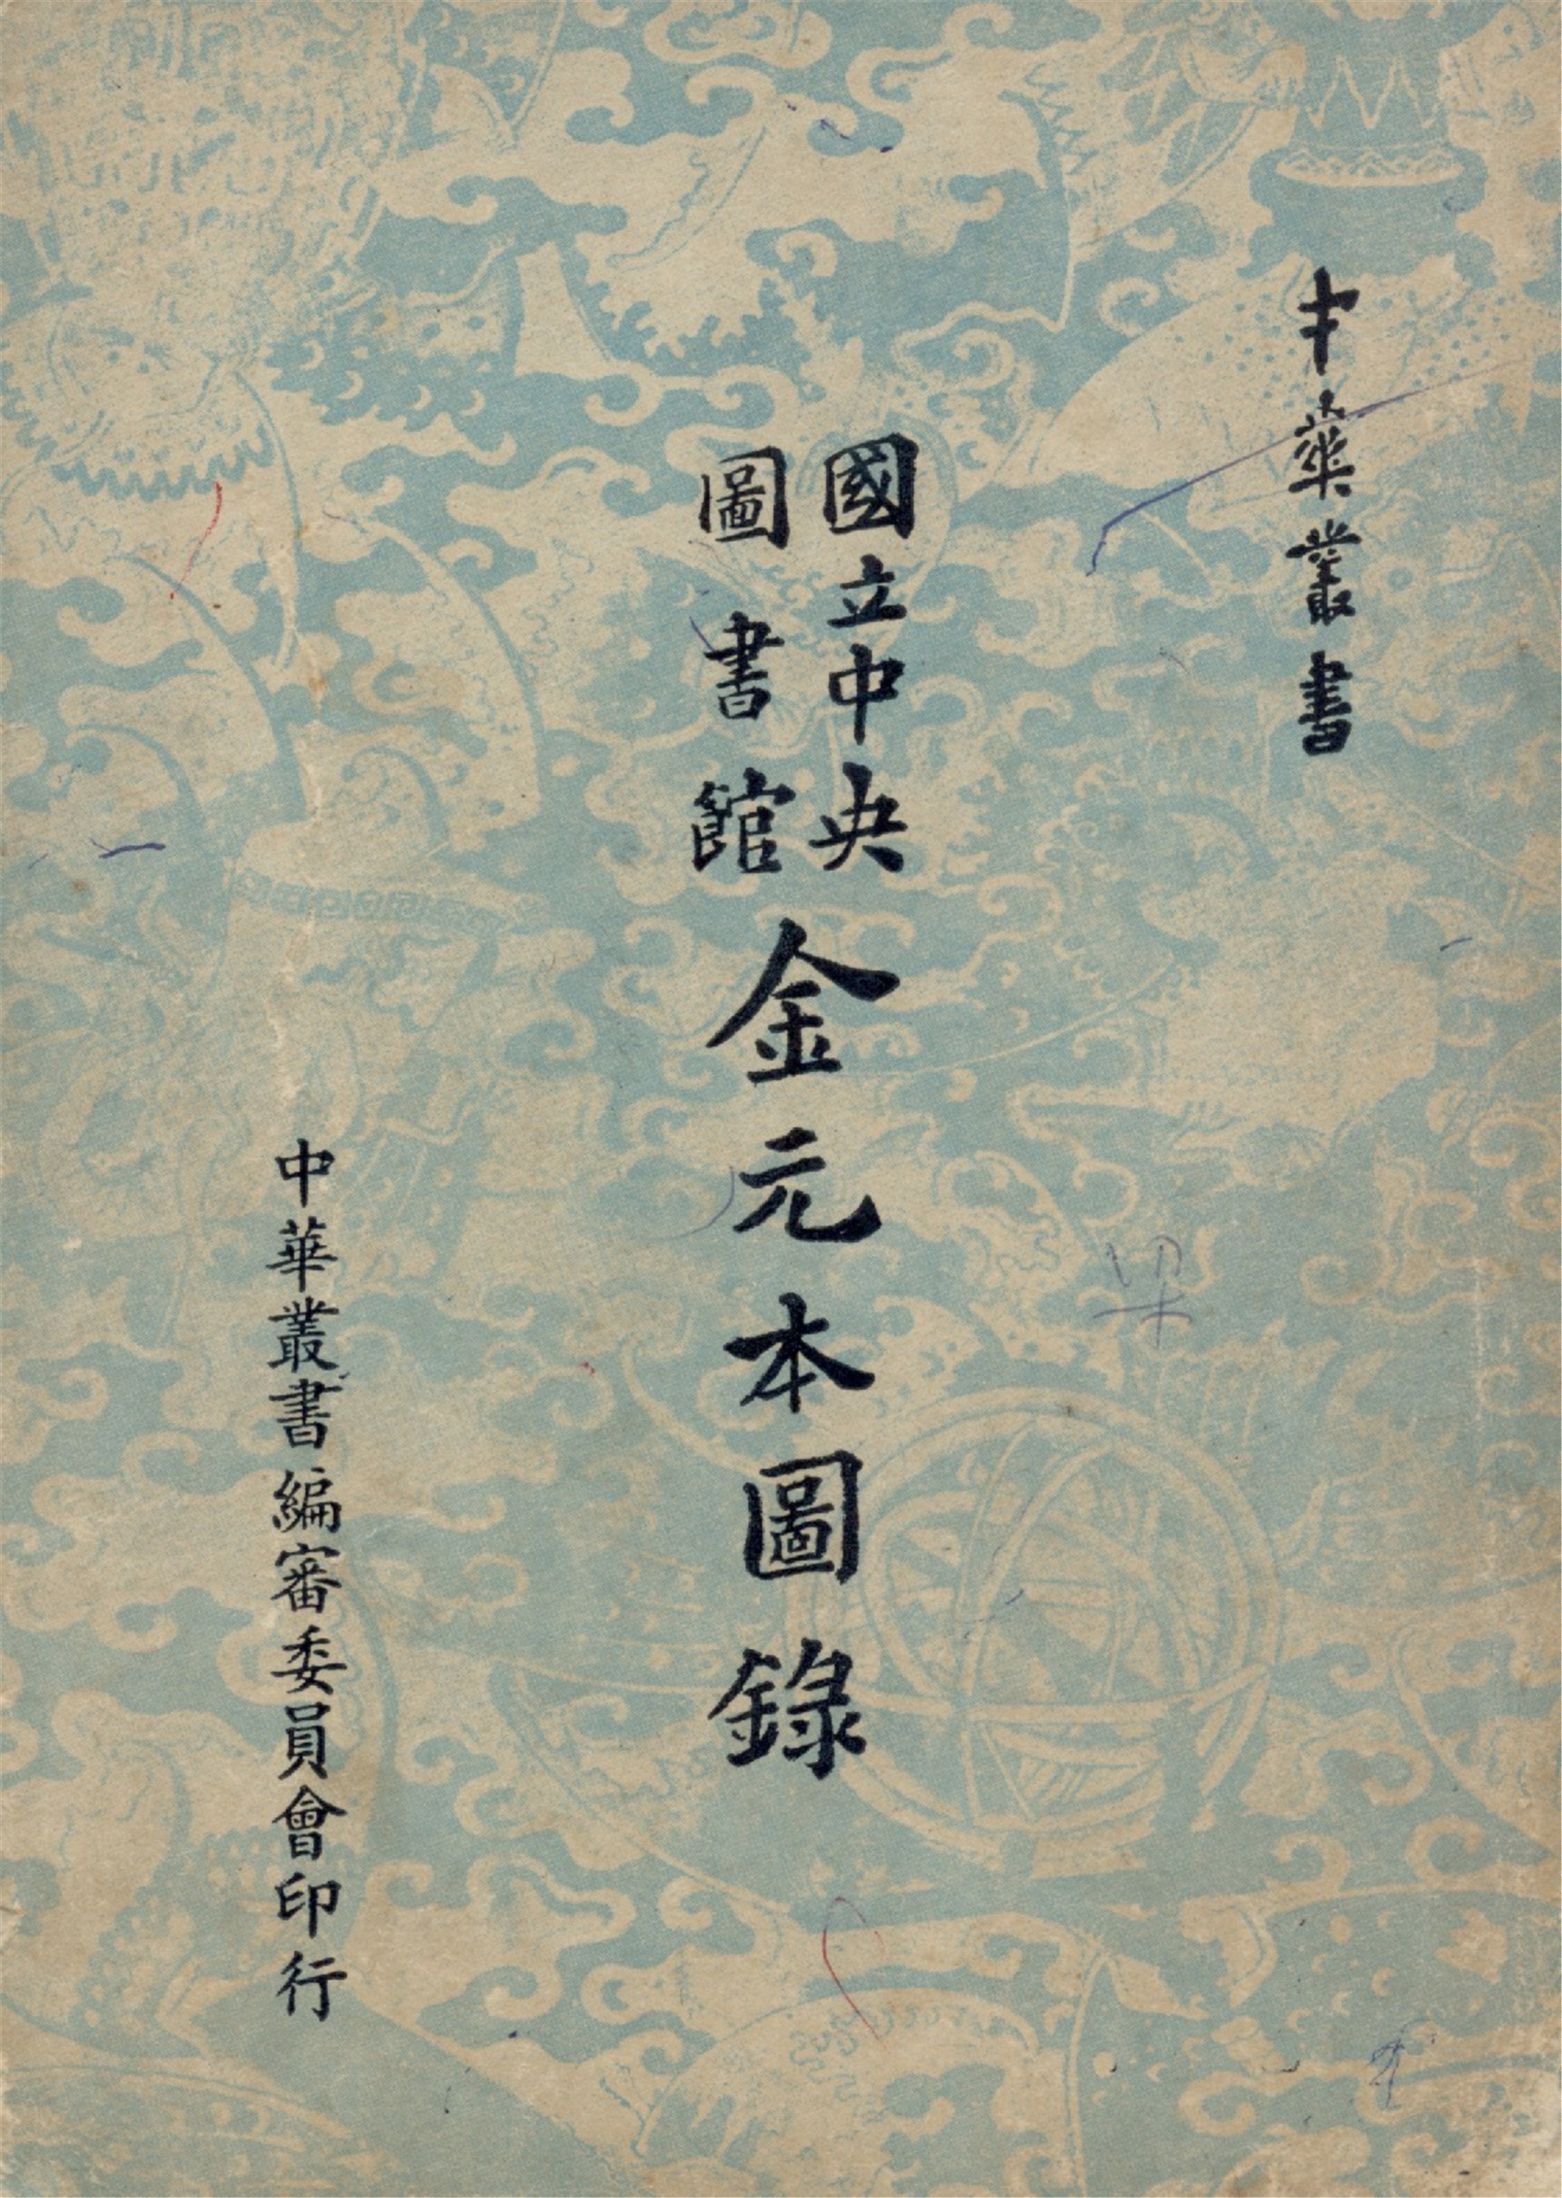 中華叢書
國立中央
圖書館
金元本圖錄
中華叢書編審委員會印行